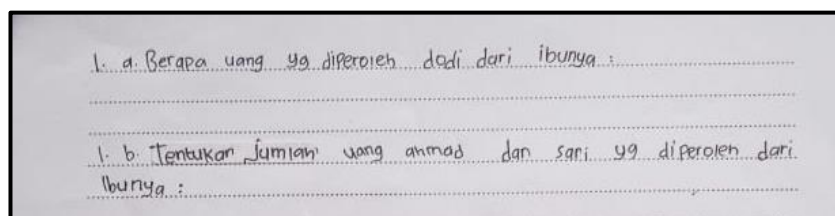 1. a. Berapa uang yg diperoleh dodi dari ibunya :
1. b. Tentukan Jumlah uang ahmad dan sari yg diperoleh dari
Ibunya :